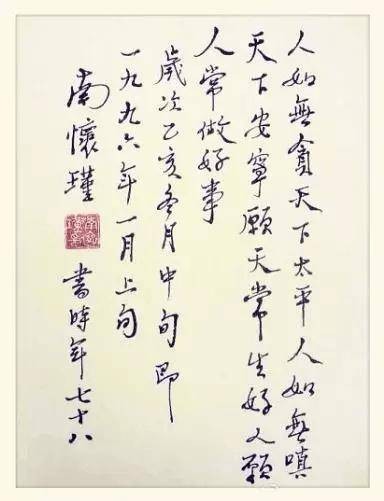 人如無貪天下太平人如無嗔
天下安寧願天常生好人願
人常做好事
歲次乙亥冬月中旬即
一九九六年一月上旬
南懷瑾 書時年七十八